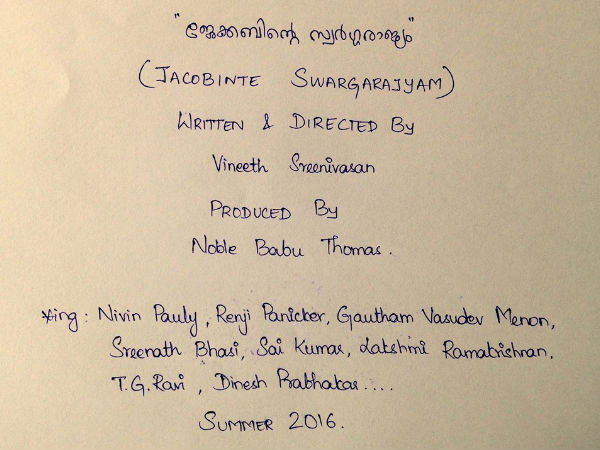 "ജേക്കബിന്റെ സ്വർഗ്ഗരാജ്യം"
(JACOBINTE SWARGARAJYAM)
WRITTEN & DIRECTED By
Vineeth Sreenivasan
PRODUCED By
Noble Babu Thomas.
*ing : Nivin Pauly, Renji Panicker, Gautham Vasudev Menon,
Sreenath Bhasi, Sai Kumar, Lakshmi Ramakrishnan,
T.G.Ravi, Dinesh Prabhakar....
SUMMER 2016.